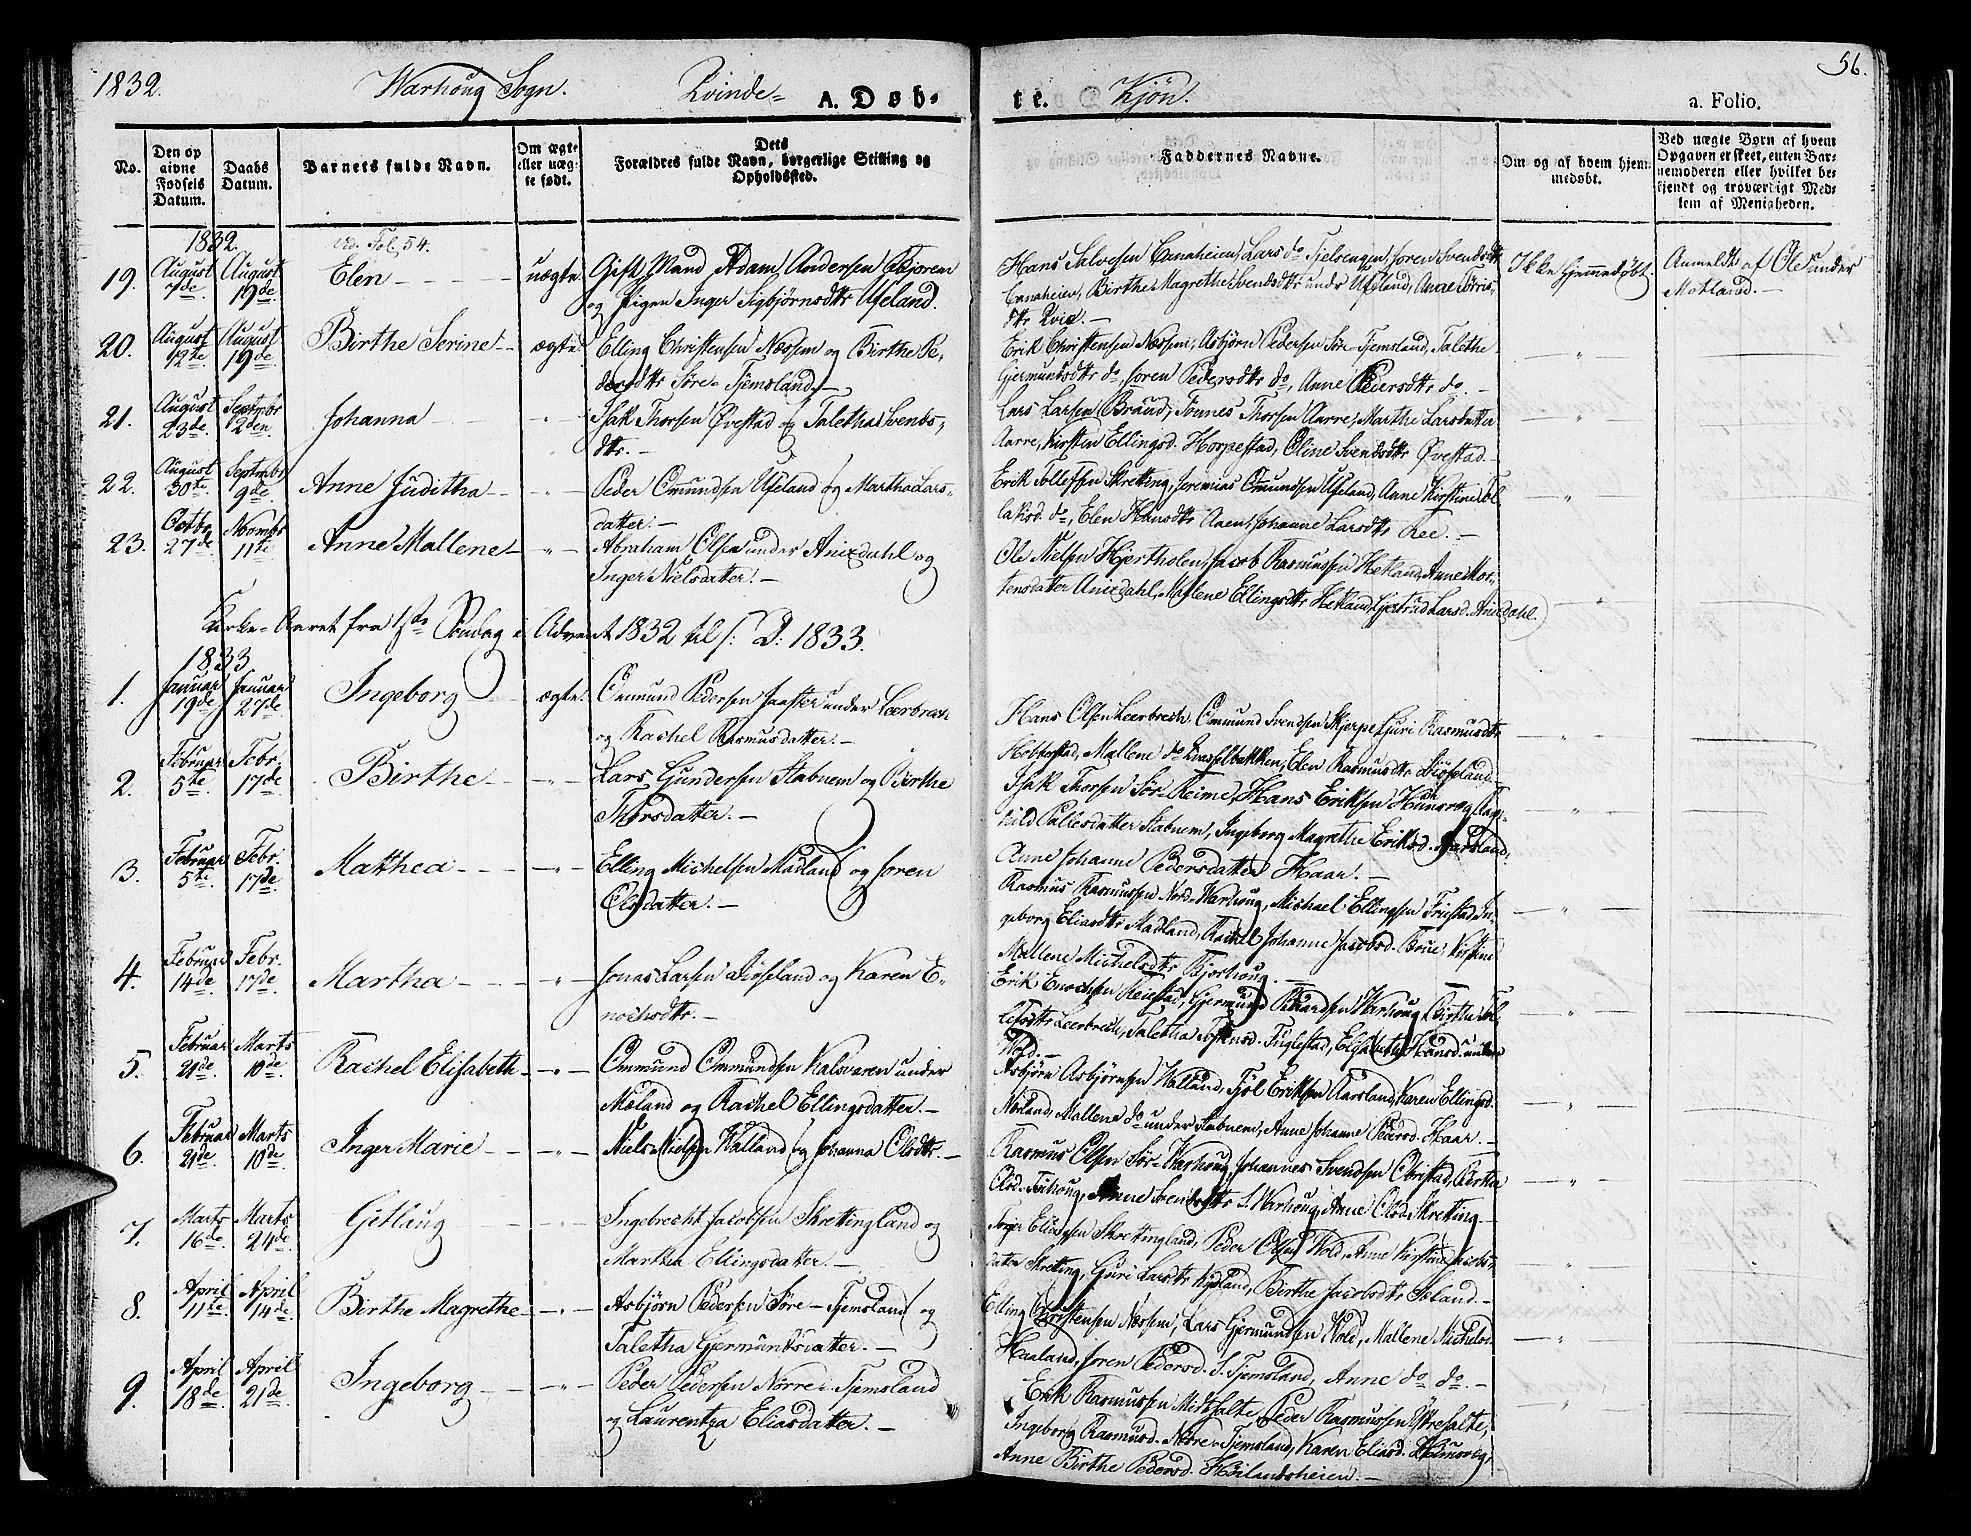 1832.
Warhoug Sogn.
Qvinde=
A. Døb=
te.
Kjön.
a. Folio.
56.
No.
Den op
givne
Fødsels
Datum.
Daabs
Datum.
Barnets fulde Navn.
Om ægte
eller uæg-
te født.
Dets
Forældres fulde Navn, borgerlige Stilling og
Opholdssted.
Faddernes Navne.
Om og af hvem hjem-
medøbt.
Ved uægte Børn af hvem
Opgaven er skeet, enten Bar-
nemoderen eller hvilket be-
kjendt og troværdigt Med-
lem af Menigheden.
1832.
vid. Fol. 54.
19. August 7de. August 19de. Elen uægte. Gift Mand Adam Andersen
og Pigen Inger Sigbjörnsdtr Ueland.
Hans Salvesen Lars do Sören Svendsdtr
Birthe Magrethe Svendsdtr under Anne
dtr Qvie.
Ikke hjemmedøbt.
Anmeldt af Ole under
Motland.
20. August 12te August 19de. Birthe Serine ægte. Elling Christensen Næssem og Birthe Pe-
dersdtr Söre-Tjemsland.
Erik Christensen Næssem, Asbjörn Pedersen Söre-Tjemsland, Talethe
Gjermundsdtr do, Sören Pedersdtr do, Anne Pedersdtr do
21. August 23de. Septmbr 2den Johanna Isak Thorsen Øvestad og Taletha Svends-
dtr.
Lars Larsen Braud, Tönnes Thorsen Aarre, Marthe Larsdatter
Aarre, Kirsten Ellingsd. Horpestad, Eline Svendsdtr Øvestad
22. August 30te Septmbr 9de. Anne Juditha Peder Omundsen Ueland og Martha Lars-
datter.
Erik Tollefsen Skretting, Jeremias Omundsen Ueland, Anne Kirstine
do, Elen Hansdtr Johanne Larsdtr Ree.
23. Octbr 27de Novmbr 11te Anne Mallene Abraham Olsen under Anixdahl og
Inger Nielsdatter.
Ole Nielsen Hjertholen, Jacob Rasmussen Hetland, Anne Mor-
tensdatter Anixdahl, Mallene Ellingsdtr Hetland, Gjertrud Larsd. Anixdahl.
Kirke-Aaret fra 1ste Söndag i Advent 1832 til s: D: 1833.
1833
1. Januar 19de Januar 27de Ingeborg ægte. Ommund Pedersen under Leerbrech
og Rachel Rasmusdatter.
Hans Olsen Leerbrech, Ommund Svendsen Skjerpe, Guri Rasmusdtr
Mallene do Elen Rasmusdtr
2. Februar 5te Febr. 17de Birthe Lars Gundersen Stabnem og Birthe
Thorsdatter.
Isak Thorsen Sör-Reime, Hans Eriksen
hild Pallesdatter Stabnem, Ingeborg Magrethe Eriksd.
Anne Johanne Pedersdatter Haar.
3. Februar 5te. Febr. 17de Matthea Elling Michelsen Madland og Sören
Olsdatter.
Rasmus Rasmussen Nord-Warhoug, Michael Ellingsen Friestad, In-
geborg Eliasdtr Madland, Rachel Johanne Jacobsd. Kirsten
Mallene Michelsdtr Bjorhoug.
4. Februar 14de Febr. 17de. Martha Jonas Larsen og Karen E-
nochsdtr.
Erik Enochsen Reiestad, Gjermund Warhoug, Birthe Tol-
lefsdtr Leerbrech, Taletha Fuglestad, Elisabeth Hansd. under
Wold.
5. Februar 21de. Marts 10de. Rachel Elisabeth Ommund Ommundsen Kalsvaren under
Mæland og Rachel Ellingsdatter.
Asbjörn Asbjörnsen Eriksen Aarsland, Karen Ellingsd.
Mallene do under Stabnem, Anne Johanne Pedersd. Haar.
6. Februar 21de. Marts 10de Inger Marie Niels Nielsen og Johanna Olsdtr.
Rasmus Olsen Sör-Warhoug, Johannes Svendsen Obrestad,
Olsd. Anne Svendsdtr S. Warhoug, Anne Olsd. Skretting.
7. Marts 16de. Marts 24de. Gitlaug Ingebrecht Jacobsen Skrettingland og
Martha Ellingsdatter.
Eliassen Skrettingland, Peder Olsen Wold, Anne Kirstine Jacobs-
datter Skretting, Guri Larsdtr Birthe Jacobsdtr
8. April 11te April 14de. Birthe Magrethe Asbjörn Pedersen Söre-Tjemsland og
Taletha Gjermundsdatter.
Elling Christensen Næssem, Lars Gjermundsen Wold, Mallene Michelsd.
Haaland, Sören Pedersd. S. Tjemsland, Anne do do.
9. April 18de. April 21de Ingeborg Peder Pedersen Nörre-Tjemsland
og Laurentza Eliasdatter.
Erik Rasmussen Midthalte, Peder Rasmussen
Ingeborg Rasmusd. Nörre-Tjemsland, Karen Eliasd.
Anne Birthe Pedersd. Höilandsheien.